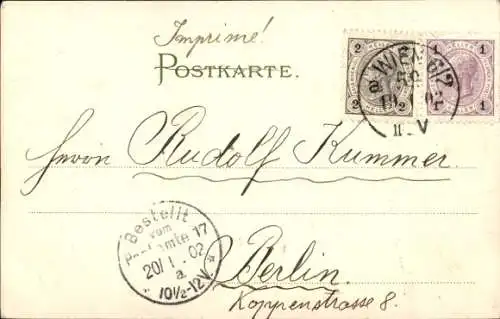 Imprimé!
POSTKARTE.
2 2
2 2
HELLER
1 1
1 1
WIEN 6/2
a
Herrn Rudolf Kummer
Bestellt
vom
Postamte 17
20/1.02
a.
* 10½-12V. *
Berlin.
Koppenstrasse 8.